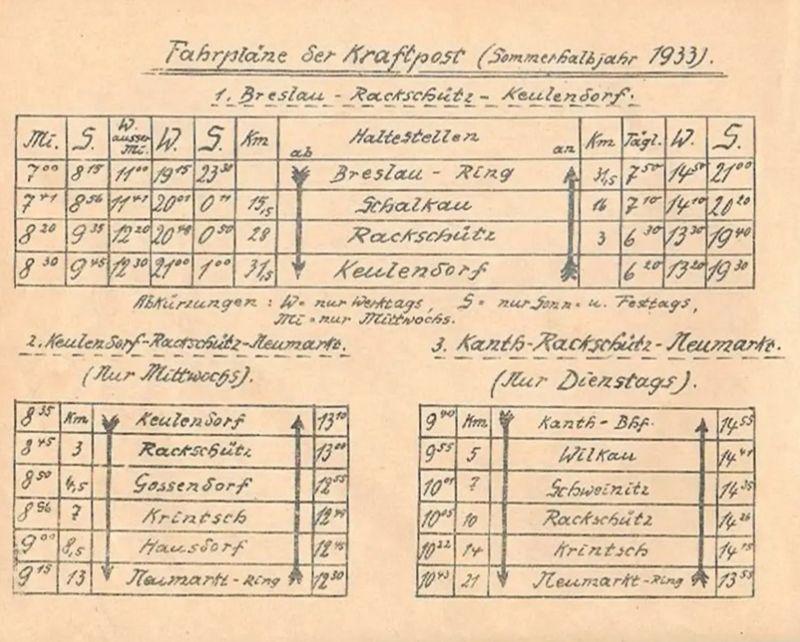 Fahrpläne der Kraftpost (Sommerhalbjahr 1933).
1. Breslau - Rackschütz - Keulendorf.
Mi. S. W. ausser Mi. W. S. Km ab Haltestellen an Km Tägl. W. S.
7⁰⁰ 8¹⁵ 11⁰⁰ 19¹⁵ 23³⁰ Breslau - Ring 31,5 7⁵⁰ 14⁵⁰ 21⁰⁰
7⁴¹ 8⁵⁶ 11⁴¹ 20⁰¹ 0¹¹ 15,5 Schalkau 16 7¹⁰ 14¹⁰ 20²⁰
8²⁰ 9³⁵ 12²⁰ 20⁴⁸ 0⁵⁰ 28 Rackschütz 3 6³⁰ 13³⁰ 19⁴⁰
8³⁰ 9⁴⁵ 12³⁰ 21⁰⁰ 1⁰⁰ 31,5 Keulendorf 6²⁰ 13²⁰ 19³⁰
Abkürzungen : W = nur Werktags, S = nur Sonn= u. Festtags,
Mi = nur Mittwochs.
2. Keulendorf-Rackschütz-Neumarkt.
(Nur Mittwochs).
8³⁵ Km Keulendorf 13¹⁰
8⁴⁵ 3 Rackschütz 13⁰⁰
8⁵⁰ 4,5 Gossendorf 12⁵⁵
8⁵⁶ 7 Krintsch 12⁴⁹
9⁰⁰ 8,5 Hausdorf 12⁴⁵
9¹⁵ 13 Neumarkt-Ring 12³⁰
3. Kanth-Rackschütz-Neumarkt.
(Nur Dienstags).
9⁴⁰ Km Kanth - Bhf. 14⁵⁵
9⁵⁵ 5 Wilkau 14⁴¹
10⁰¹ ? Schweinitz 14³⁵
10⁰⁵ 10 Rackschütz 14²⁶
10²² 14 Krintsch 14¹⁵
10⁴³ 21 Neumarkt-Ring 13⁵⁵